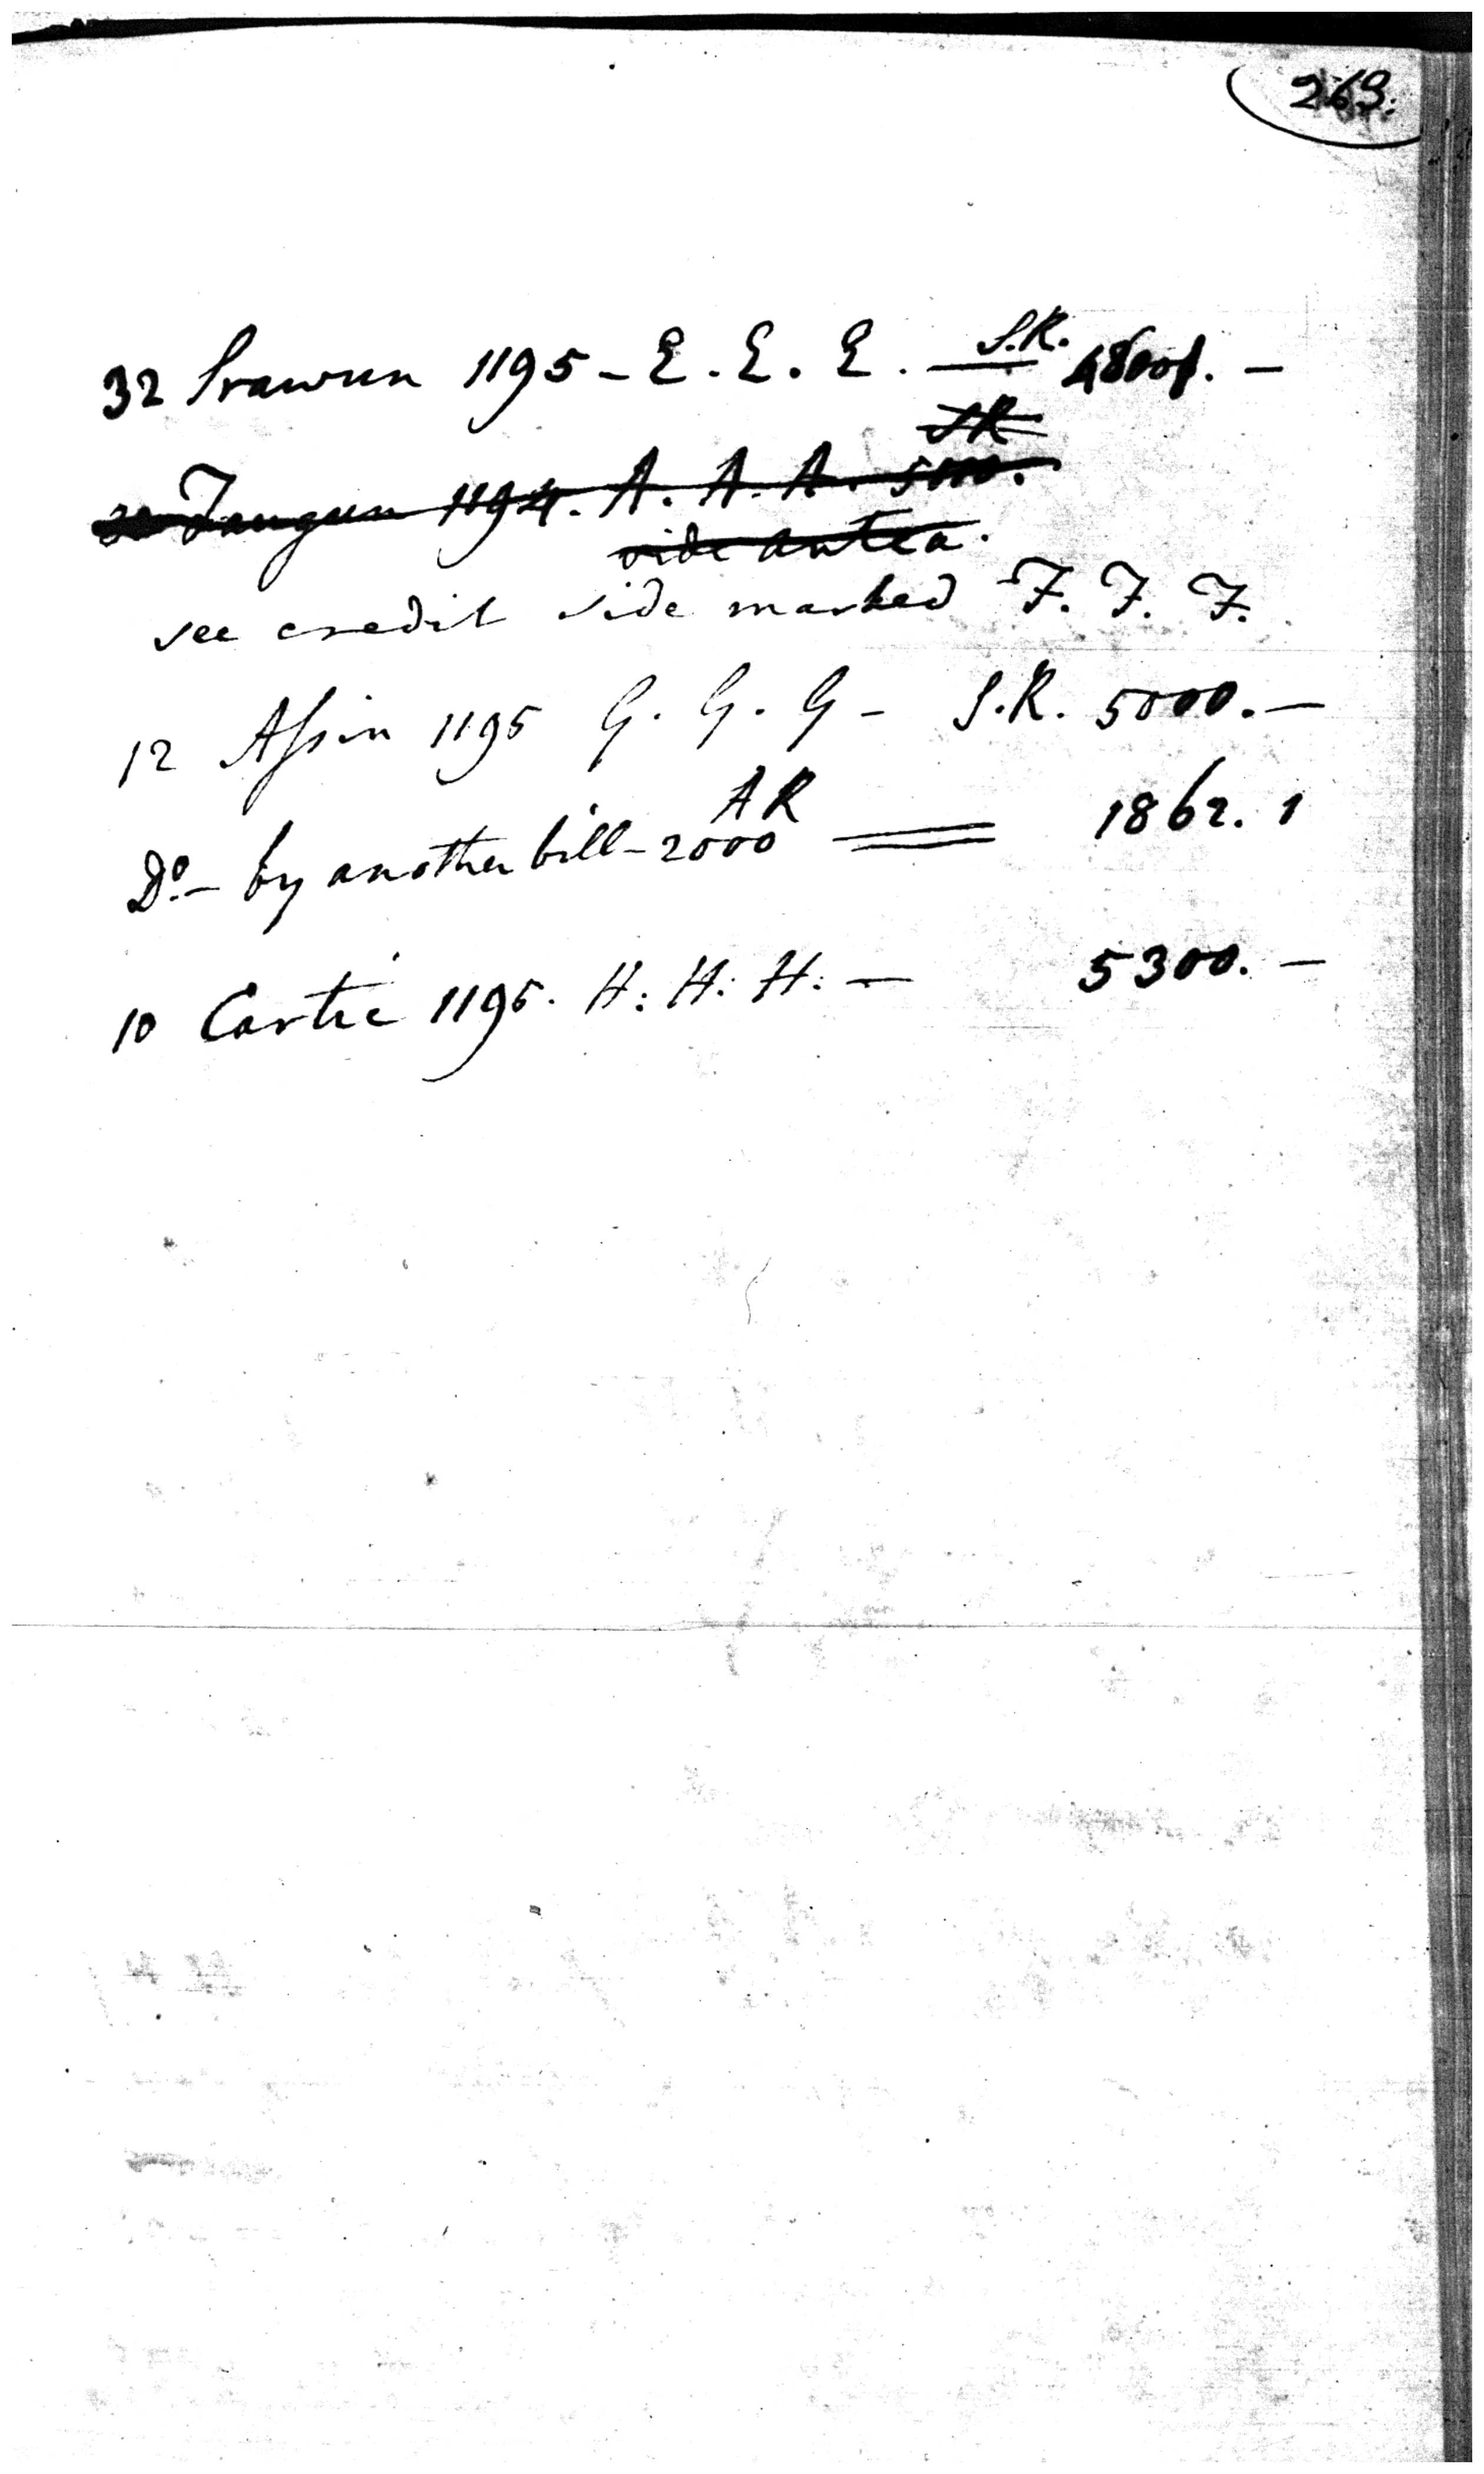 269.
32 Srawun 1195 - E. E. E. — S.R.
SR
Faugun 1194. A. A. A. 5000.
vide antea.
see credit side marked F. F. F.
12 Assin 1195 G. G. G - S.R. 5000. —
Do. - by another bill - 2000 AR == 1862. 1
10 Cartic 1195. H: H: H: — 5300. —